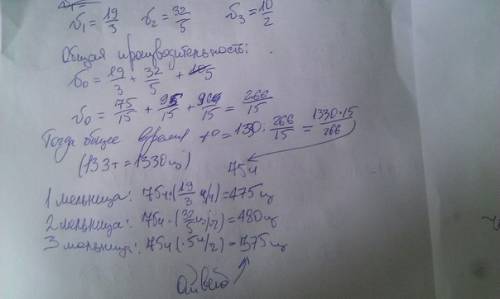 v₁ = 19/3 v₂ = 32/5 v₃ = 10/2
Общая производительность:
v₀ = 19/3 + 32/5 + 5
v₀ = 75/15 + 95/15 + 96/15 = 266/15
Тогда общее время = 1330 · 266/15 = 1330·15/266
(133т = 1330ц) 75ч
1 мельница: 75ч·(19/3 ц/ч) = 475ц
2 мельница: 75ч·(32/5 ц/ч) = 480ц
3 мельница: 75ч(·5ч/2) = 375ц
Ответ